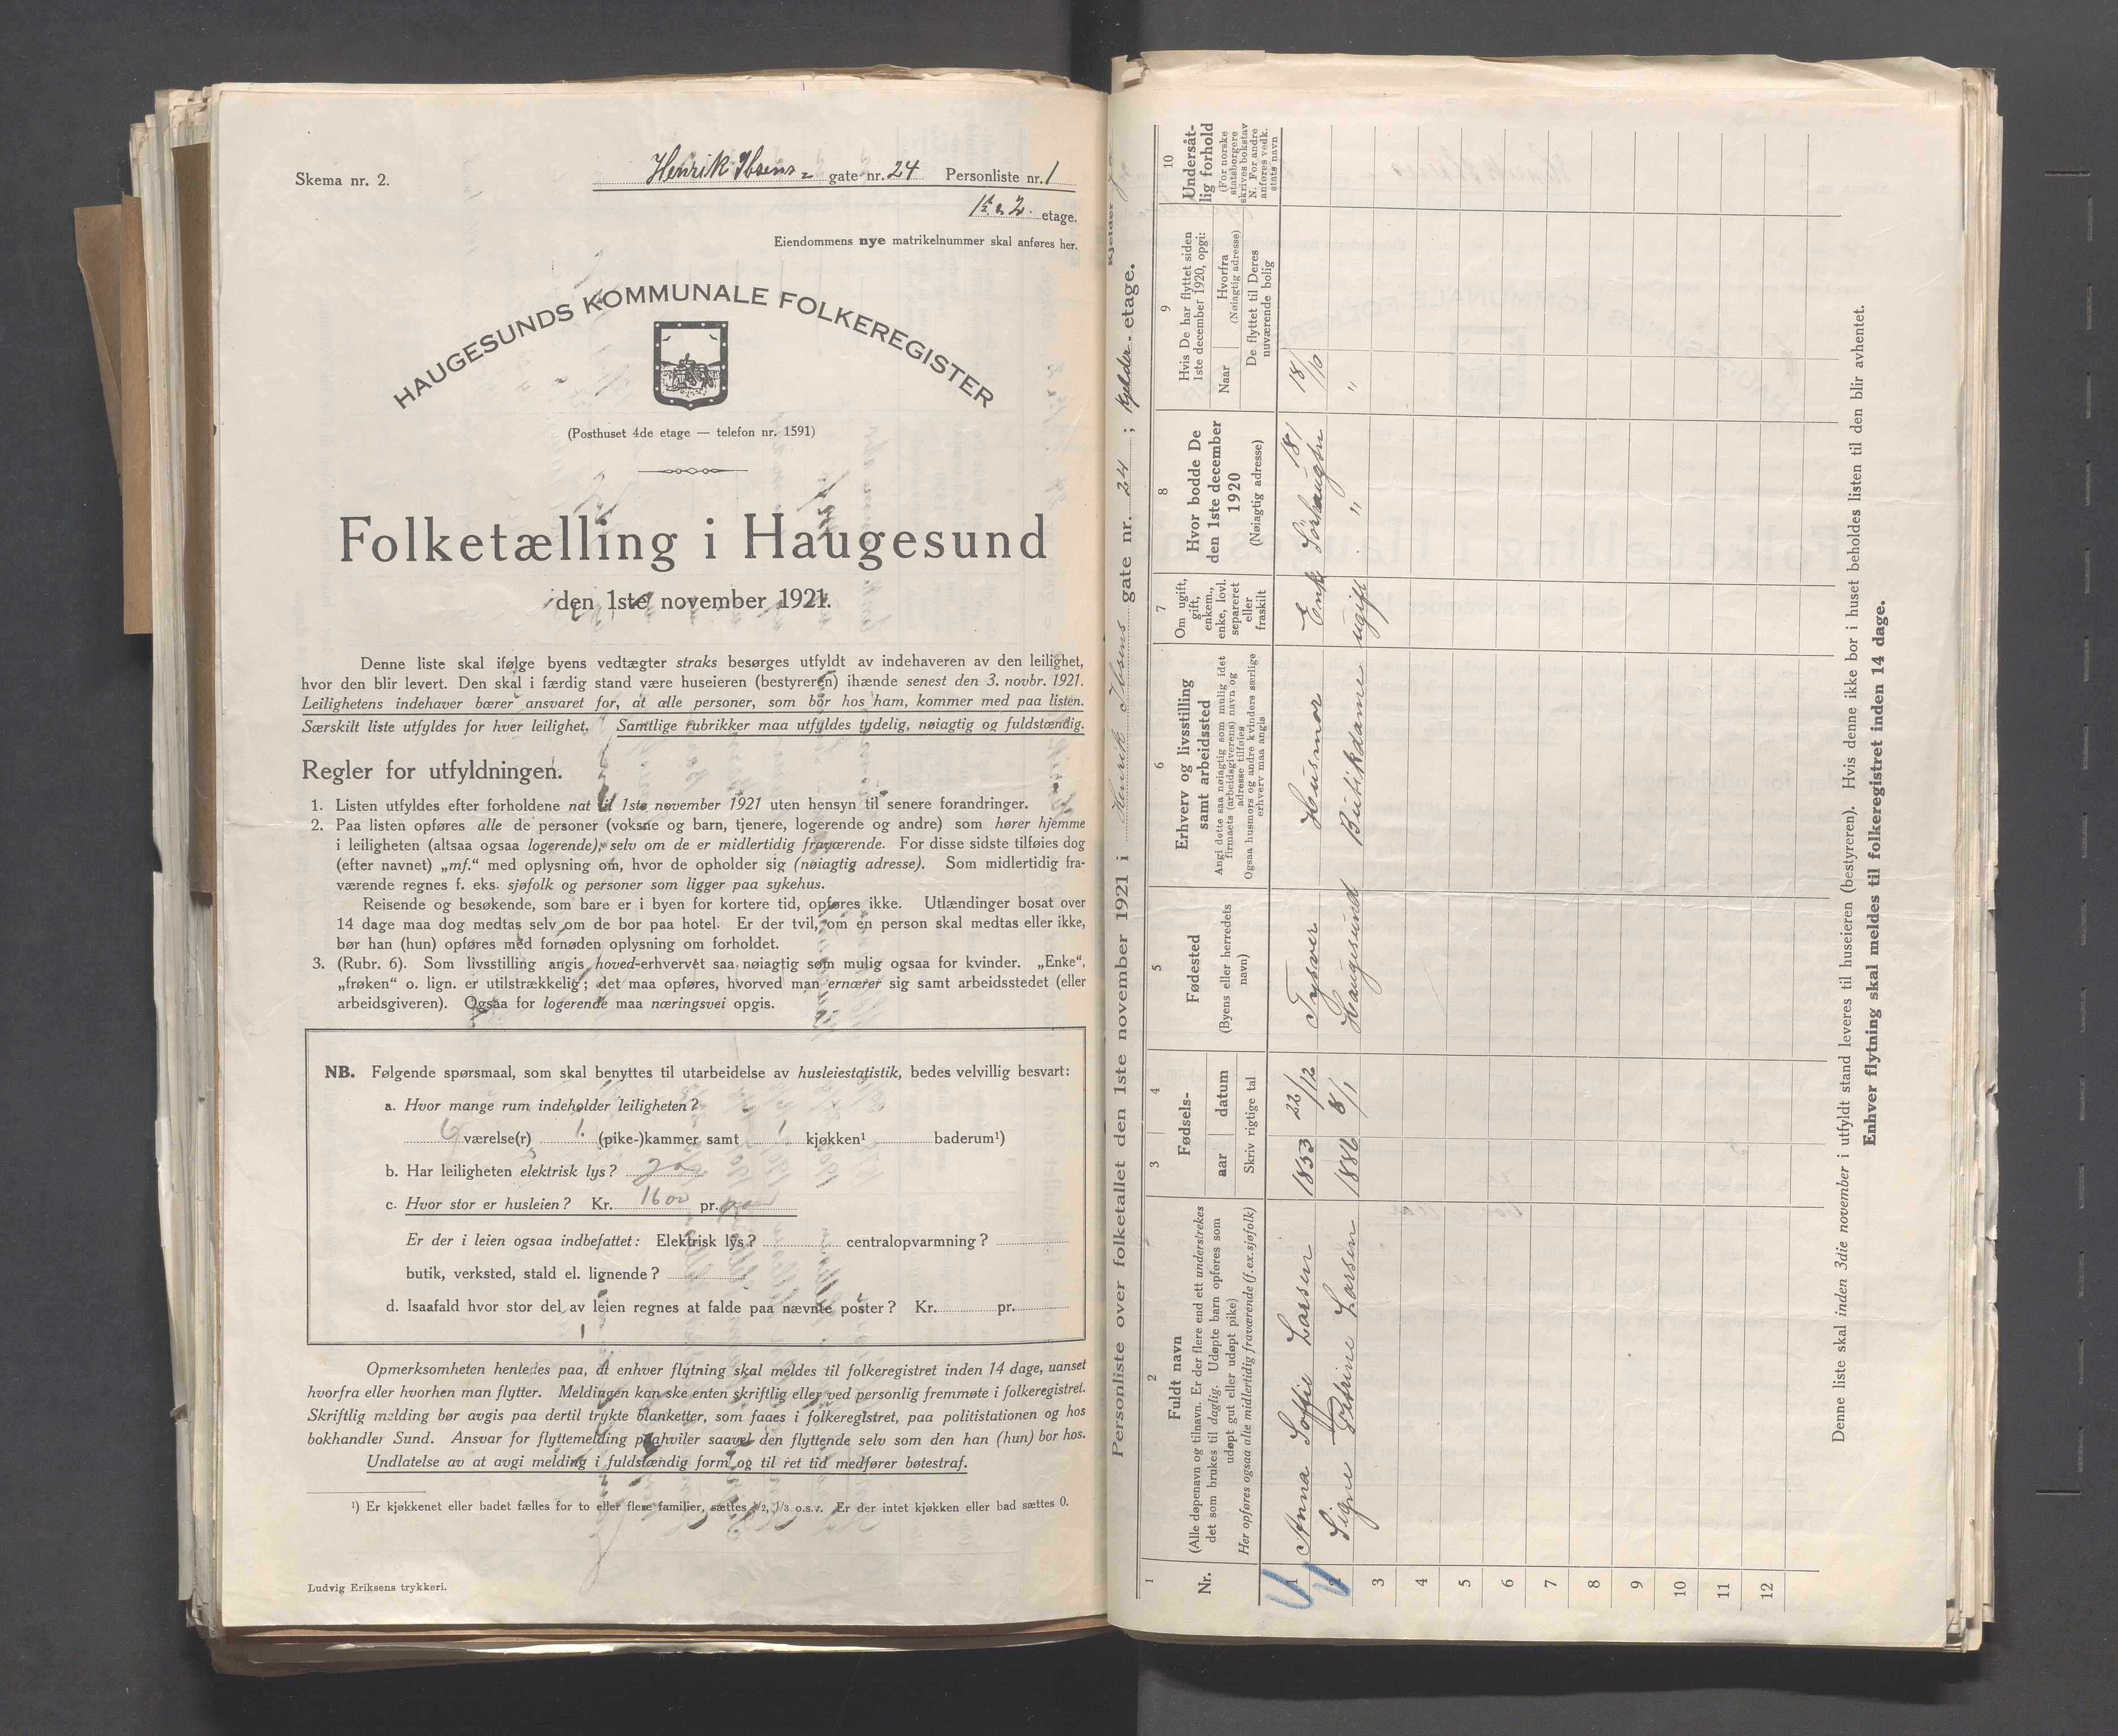 Skema nr. 2.
Henrik Ibsens gate nr. 24 Personliste nr. 1
1ste & 2. etage.
Eiendommens nye matrikelnummer skal anføres her.
HAUGESUNDS KOMMUNALE FOLKEREGISTER
(Posthuset 4de etage — telefon nr. 1591)
Folketælling i Haugesund
den 1ste november 1921.
Denne liste skal ifølge byens vedtægter straks besørges utfyldt av indehaveren av den leilighet,
hvor den blir levert. Den skal i færdig stand være huseieren (bestyreren) ihænde senest den 3. novbr. 1921.
Leilighetens indehaver bærer ansvaret for, at alle personer, som bor hos ham, kommer med paa listen.
Særskilt liste utfyldes for hver leilighet. Samtlige rubrikker maa utfyldes tydelig, nøiagtig og fuldstændig.
Regler for utfyldningen.
1. Listen utfyldes efter forholdene nat til 1ste november 1921 uten hensyn til senere forandringer.
2. Paa listen opføres alle de personer (voksne og barn, tjenere, logerende og andre) som hører hjemme
i leiligheten (altsaa ogsaa logerende), selv om de er midlertidig fraværende. For disse sidste tilføies dog
(efter navnet) „mf.“ med oplysning om, hvor de opholder sig (nøiagtig adresse). Som midlertidig fra-
værende regnes f. eks. sjøfolk og personer som ligger paa sykehus.
Reisende og besøkende, som bare er i byen for kortere tid, opføres ikke. Utlændinger bosat over
14 dage maa dog medtas selv om de bor paa hotel. Er der tvil, om en person skal medtas eller ikke,
bør han (hun) opføres med fornøden oplysning om forholdet.
3. (Rubr. 6). Som livsstilling angis hoved-erhvervet saa nøiagtig som mulig ogsaa for kvinder. „Enke“,
„frøken“ o. lign. er utilstrækkelig; det maa opføres, hvorved man ernærer sig samt arbeidsstedet (eller
arbeidsgiveren). Ogsaa for logerende maa næringsvei opgis.
NB. Følgende spørsmaal, som skal benyttes til utarbeidelse av husleiestatistik, bedes velvillig besvart:
a. Hvor mange rum indeholder leiligheten?
6 værelse(r) 1 (pike-)kammer samt 1 kjøkken¹ baderum¹)
b. Har leiligheten elektrisk lys? Ja
c. Hvor stor er husleien? Kr. 1600 pr.
Er der i leien ogsaa indbefattet: Elektrisk lys? centralopvarmning?
butik, verksted, stald el. lignende?
d. Isaafald hvor stor del av leien regnes at falde paa nævnte poster? Kr. pr.
Opmerksomheten henledes paa, at enhver flytning skal meldes til folkeregistret inden 14 dage, uanset
hvorfra eller hvorhen man flytter. Meldingen kan ske enten skriftlig eller ved personlig fremmøte i folkeregistret.
Skriftlig melding bør avgis paa dertil trykte blanketter, som faaes i folkeregistret, paa politistationen og hos
bokhandler Sund. Ansvar for flyttemelding paahviler saavel den flyttende selv som den han (hun) bor hos.
Undlatelse av at avgi melding i fuldstændig form og til ret tid medfører bøtestraf.
¹) Er kjøkkenet eller badet fælles for to eller flere familier, sættes 1/2, 1/3 o.s.v. Er der intet kjøkken eller bad sættes 0.
Ludvig Eriksens trykkeri.
Personliste over folketallet den 1ste november 1921 i Henrik Ibsens gate nr. 24; kjelder- etage.
1 2 3 4 5 6 7 8 9 10
Nr.
Fuldt navn
(Alle døpenavn og tilnavn. Er der flere end ett understrekes
det som brukes til daglig. Udøpte barn opføres som
udøpt gut eller udøpt pike)
Her opføres ogsaa alle midlertidig fraværende (f.ex.sjøfolk)
Fødsels-
aar datum
Skriv rigtige tal
Fødested
(Byens eller herredets
navn)
Erhverv og livsstilling
samt arbeidssted
Angi dette saa nøiagtig som mulig idet
firmaets (arbeidsgiverens) navn og
adresse tilføies
Ogsaa husmors og andre kvinders særlige
erhverv maa angis
Om ugift,
gift,
enkem.,
enke, lovl.
separeret
eller
fraskilt
Hvor bodde De
den 1ste december
1920
(Nøiagtig adresse)
Hvis De har flyttet siden
1ste december 1920, opgi:
Naar
Hvorfra
(Nøiagtig adresse)
De flyttet til Deres
nuværende bolig
Undersåt-
lig forhold
(For norske
statsborgere
skrives bokstav
N. For andre
anføres vedk.
stats navn
1 Anna Soffie Larsen 1853 22/12 Tysvær Husmor Enke Sørhaugtn 18/ 18/10
2 Signe Petrine Larsen 1886 8/1 Haugesund Butikdame ugift " "
3
4
5
6
7
8
9
10
11
12
Denne liste skal inden 3die november i utfyldt stand leveres til huseieren (bestyreren). Hvis denne ikke bor i huset beholdes listen til den blir avhentet.
Enhver flytning skal meldes til folkeregistret inden 14 dage.